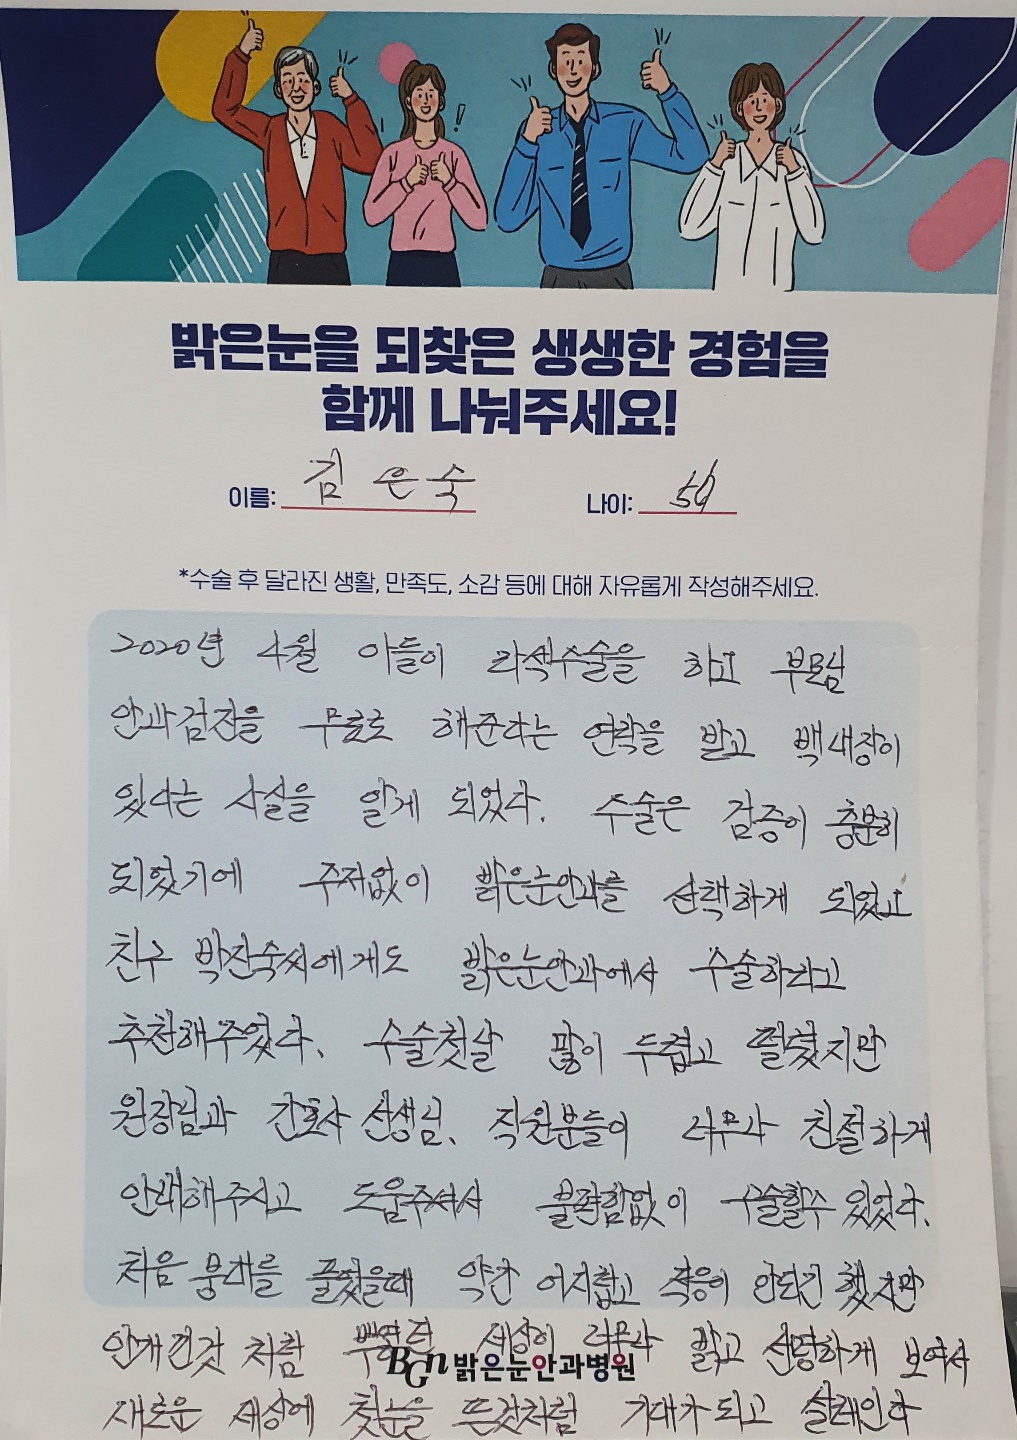 밝은눈을 되찾은 생생한 경험을
함께 나눠주세요!
이름: 김은숙 나이: 54
*수술 후 달라진 생활, 만족도, 소감 등에 대해 자유롭게 작성해주세요.
2020년 4월 아들이 라색수술을 하고 부모님
안과검진을 무료로 해준다는 연락을 받고 백내장이
있다는 사실을 알게 되었다. 수술은 검증이 충분히
되었기에 주저없이 밝은눈안과를 선택하게 되었고
친구 박잔숙씨에게도 밝은눈안과에서 수술하라고
추천해주었다. 수술첫날 많이 두렵고 떨렸지만
원장님과 간호사 선생님, 직원분들이 너무나 친절하게
안내해주시고 도움주셔서 불편함없이 수술할수 있었다.
처음 붕대를 풀렀을때 약간 어지럽고 적응이 안되긴 했지만
안개낀것 처럼 뿌옇던 세상이 너무나 밝고 선명하게 보여서
BGN 밝은눈안과병원
새로운 세상에 첫눈을 뜬것처럼 기대가 되고 설레인다